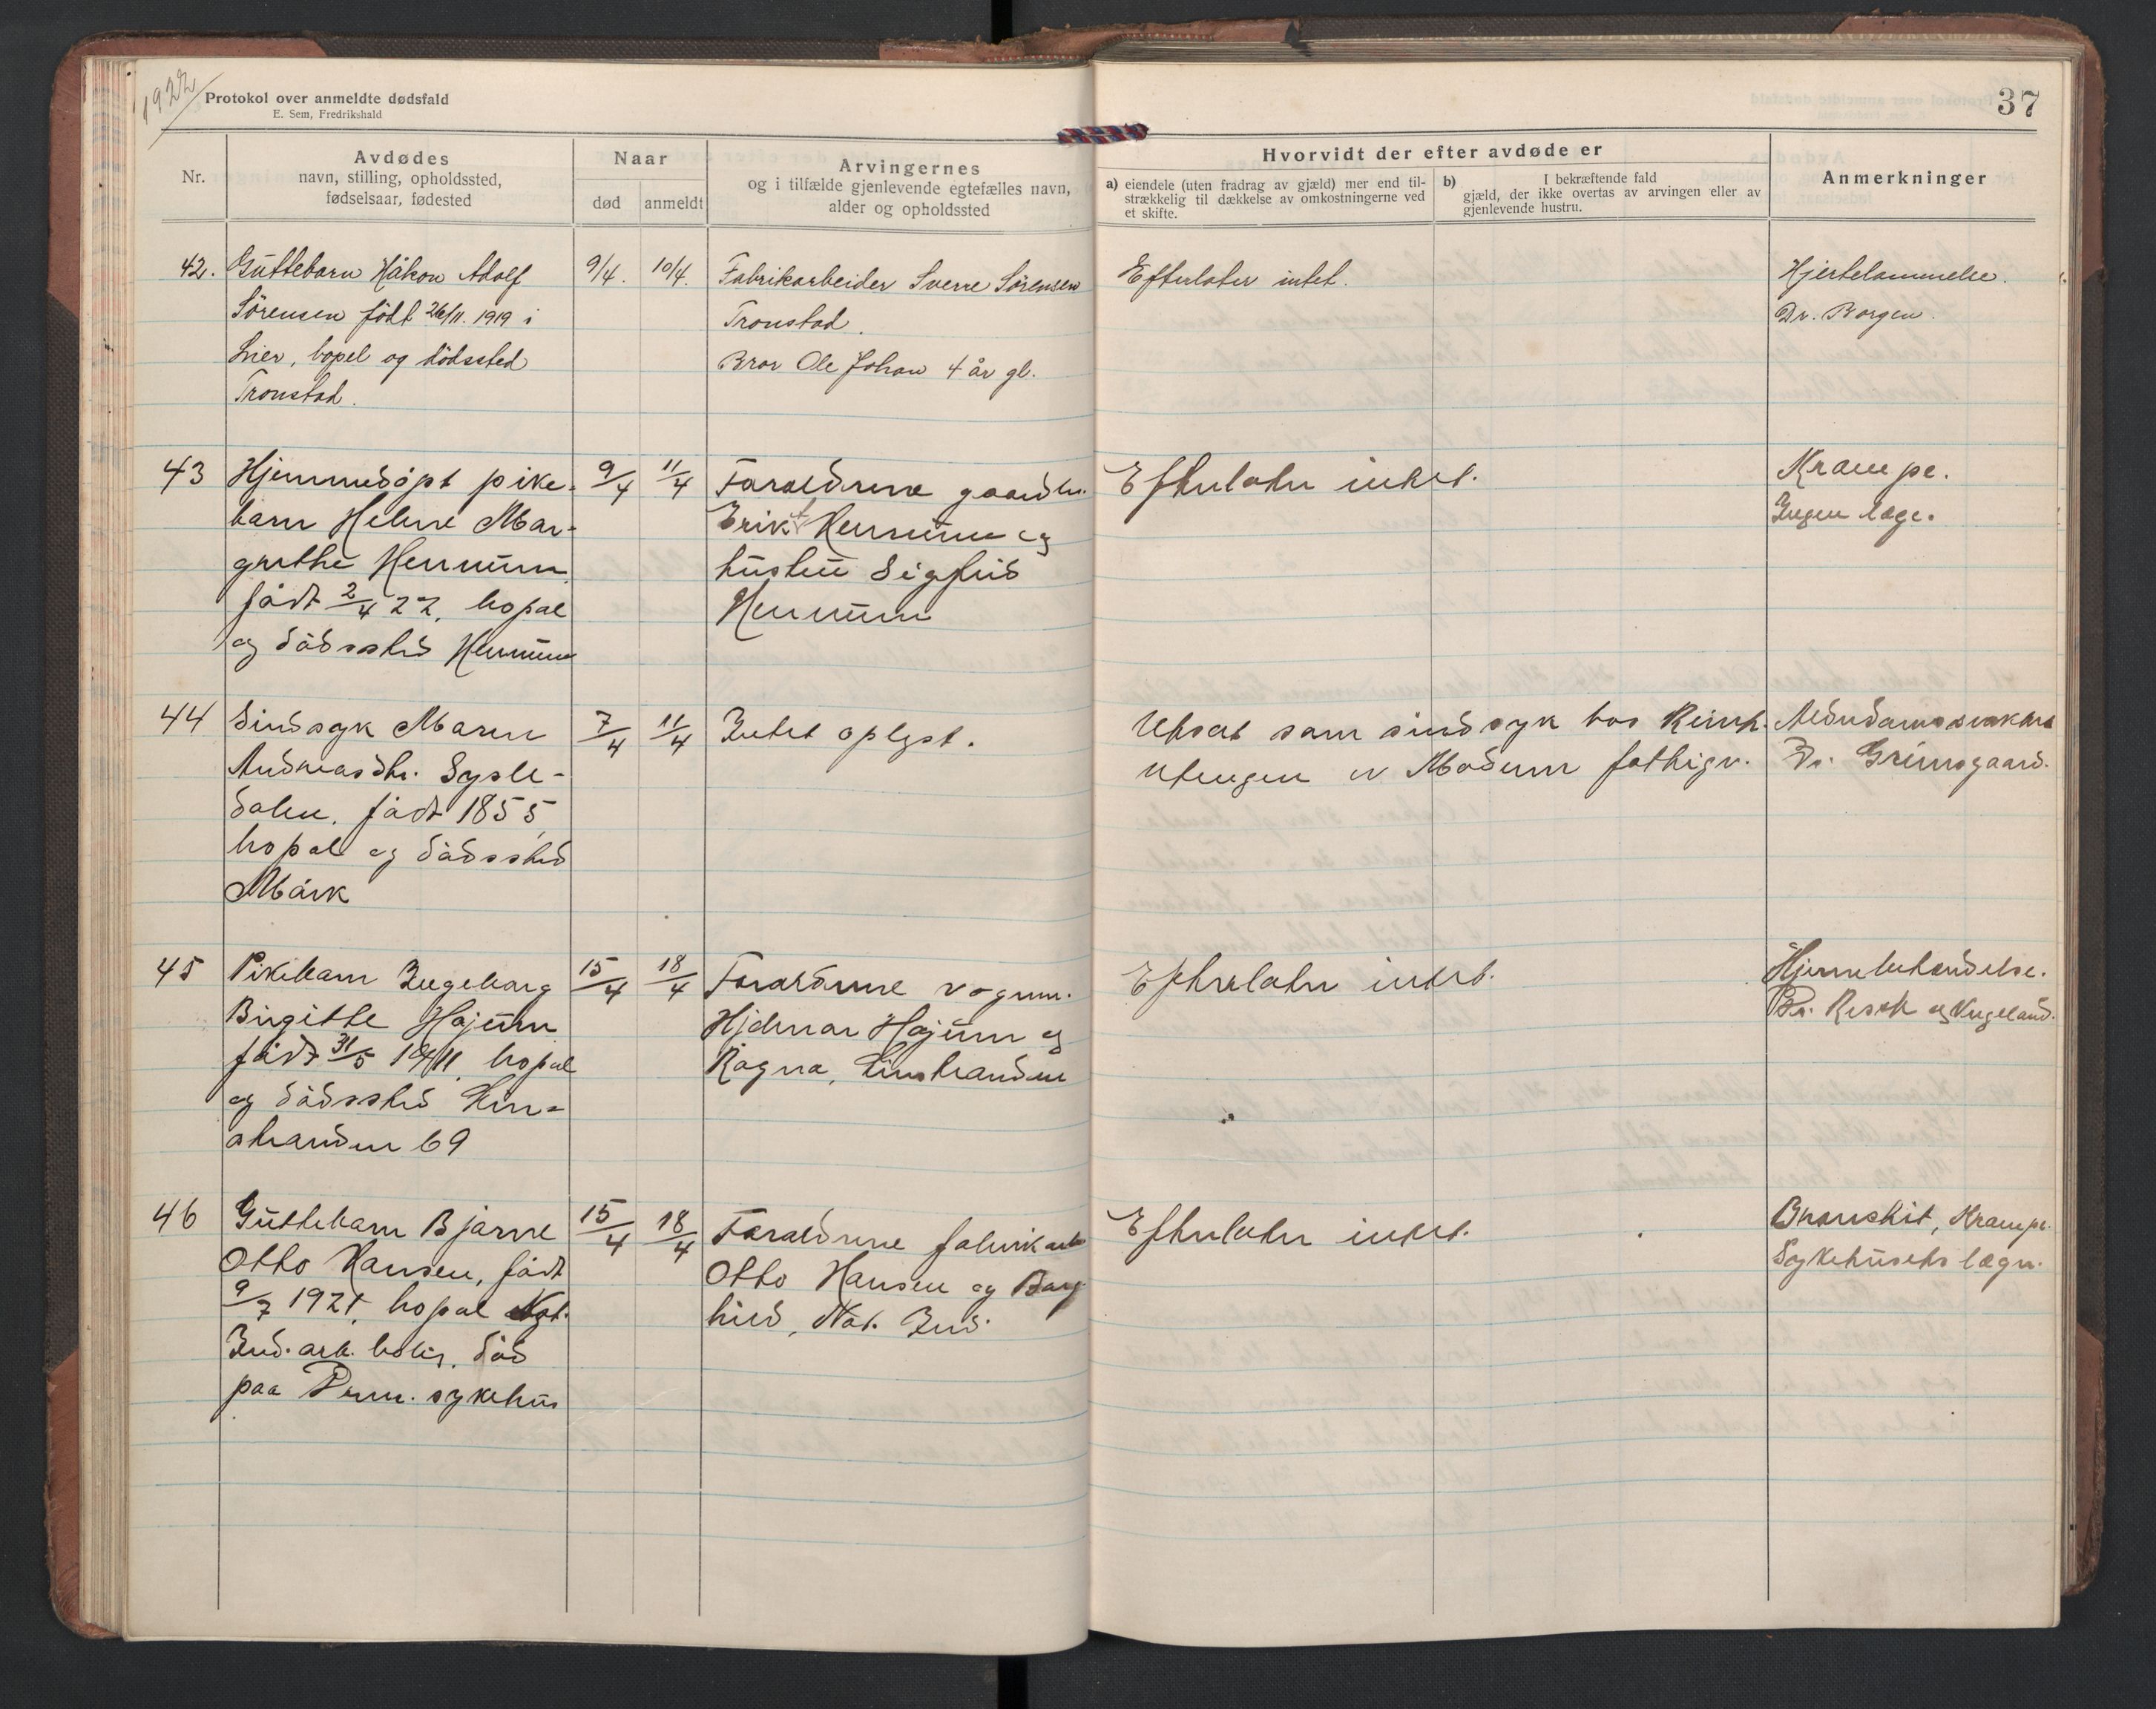 1922
Protokol over anmeldte dødsfald
E. Sem, Fredrikshald
37
Nr.
Avdødes
navn, stilling, opholdssted,
fødselsaar, fødested
Naar
død
anmeldt
Arvingernes
og i tilfælde gjenlevende egtefælles navn,
alder og opholdssted
Hvorvidt der efter avdøde er
a) eiendele (uten fradrag av gjæld) mer end til-
strækkelig til dækkelse av omkostningerne ved
et skifte.
b) I bekræftende fald
gjæld, der ikke overtas av arvingen eller av
gjenlevende hustru.
Anmerkninger
42.
Guttebarn Håkon Adolf
Sörensen födt 26/11. 1919 i
Lier, bopel og dödssted
Tronstad.
9/4.
10/4.
Fabrikarbeider Sverre Sörensen
Tronstad.
Bror Ole Johan 4 år gl.
Efterlater intet.
Hjertelammelse.
Dr. Borgen.
43
Hjemmedöpt pike-
barn Helene Mar-
grethe Hennum
födt 2/4 22, bopæl
og dödssted Hennum
9/4
11/4
Forældrene gaardbr.
Erik Hennum og
hustru Sigfrid
Hennum
Efterlater intet.
Krampe.
Ingen læge.
44
Sindssyk Maren
Andreasdtr. Sysle-
dalen, födt 1855,
bopæl og dödssted
Mörk
7/4
11/4
Intet oplyst.
Utsat som sindssyk hos Reinh.
Utengen av Modum fattigv.
Alderdomssvakhet
Dr. Grimsgaard.
45
Pikebarn Ingeborg
Birgitte Högum
födt 31/5 1911, bopæl
og dödssted Lier-
stranden 69
15/4
18/4
Forældrene vognm.
Hjalmar Högum og
Ragna, Lierstranden
Efterlater intet.
Hjernebetændelse.
Dr. Resch og Vugeland.
46
Guttebarn Bjarne
Otto Hansen, födt
9/7 1921, bopæl Nat.
Ind. arb. bolig, död
paa Drm. sykehus
15/4
18/4
Forældrene fabrikarb
Otto Hansen og Borg
hild, Nat. Ind.
Efterlater intet.
Bronchit, Krampe.
Sykehusets læger.